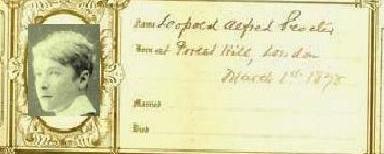 Name Leopold Alfred Procter
Born at Forest Hill, London
March 1st 1878
Married
Died